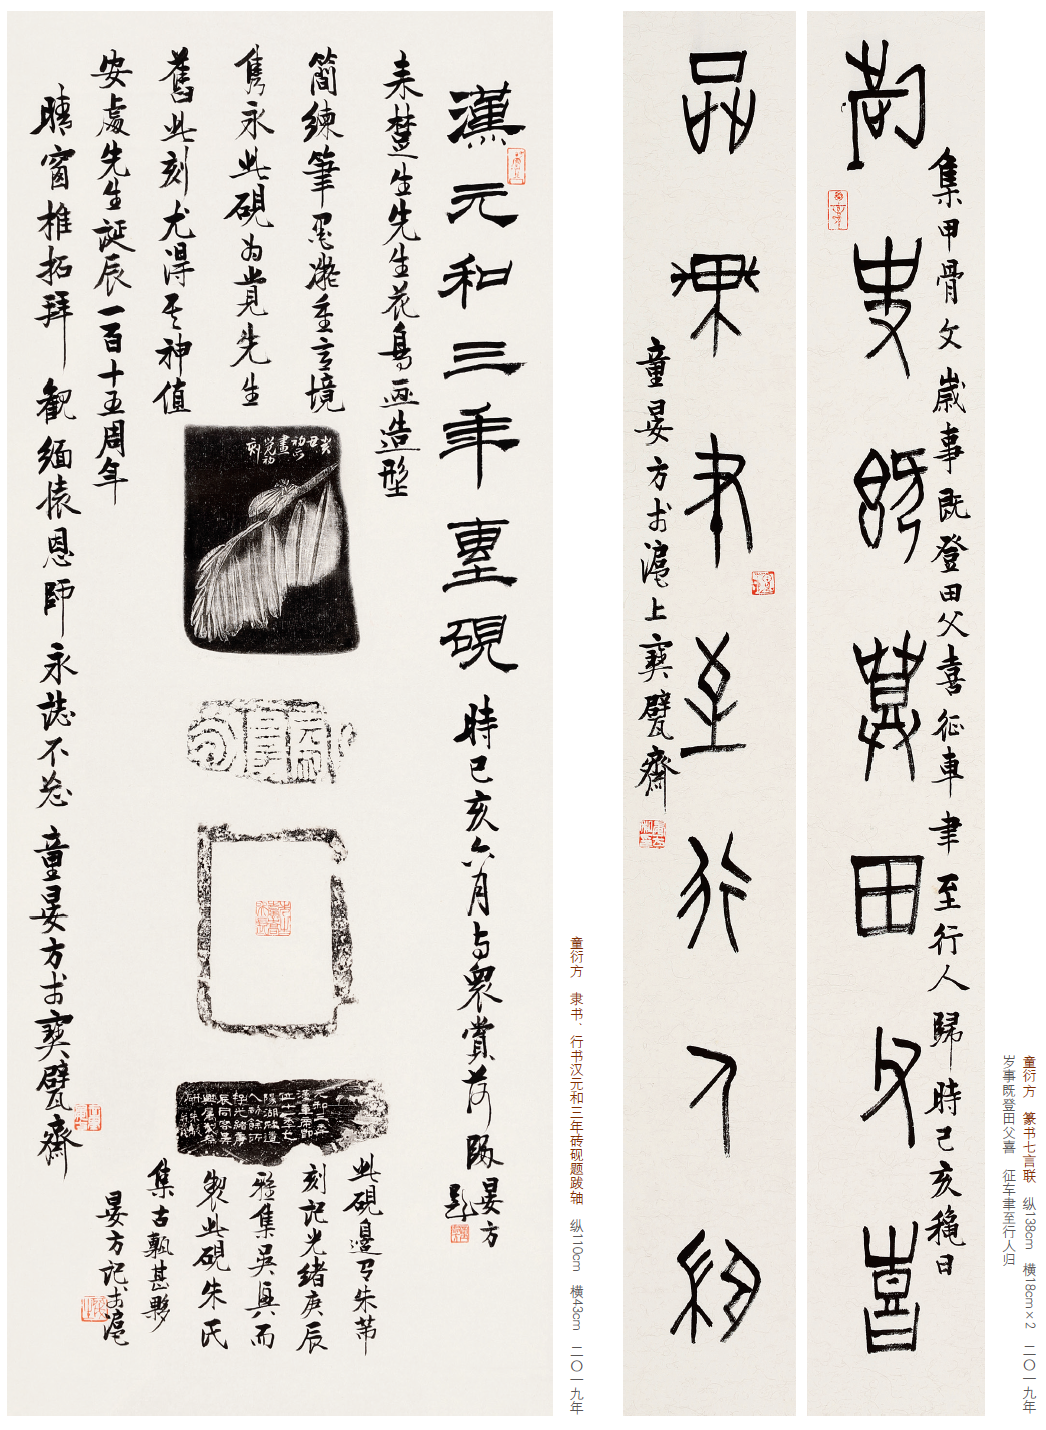 童衍方　篆书七言联　纵138cm　横18cm×2　二〇一九年
岁事既登田父喜　征车聿至行人归
集甲骨文歲事既登田父喜征車聿至行人歸時己亥穐日
歲事既登田父喜
征車聿至行人歸
童晏方于滬上寶甓齋
童衍方　隶书、行书汉元和三年砖砚题跋轴　纵110cm　横43cm　二〇一九年
漢元和三年專硯
時己亥六月与衆賞荷
晏方題
来楚生先生花鳥画造型
簡練筆墨凝重意境
雋永此硯为覚先生
舊此刻尤得其神值
安處先生誕辰一百十五周年
晴窗椎拓拜觀緬懷恩師永誌不忘童晏方于寶甓齋
此硯邊有朱芾
刻記光緒庚辰
雅集吳興而
製此硯朱氏
集古甎甚夥
晏方記于滬